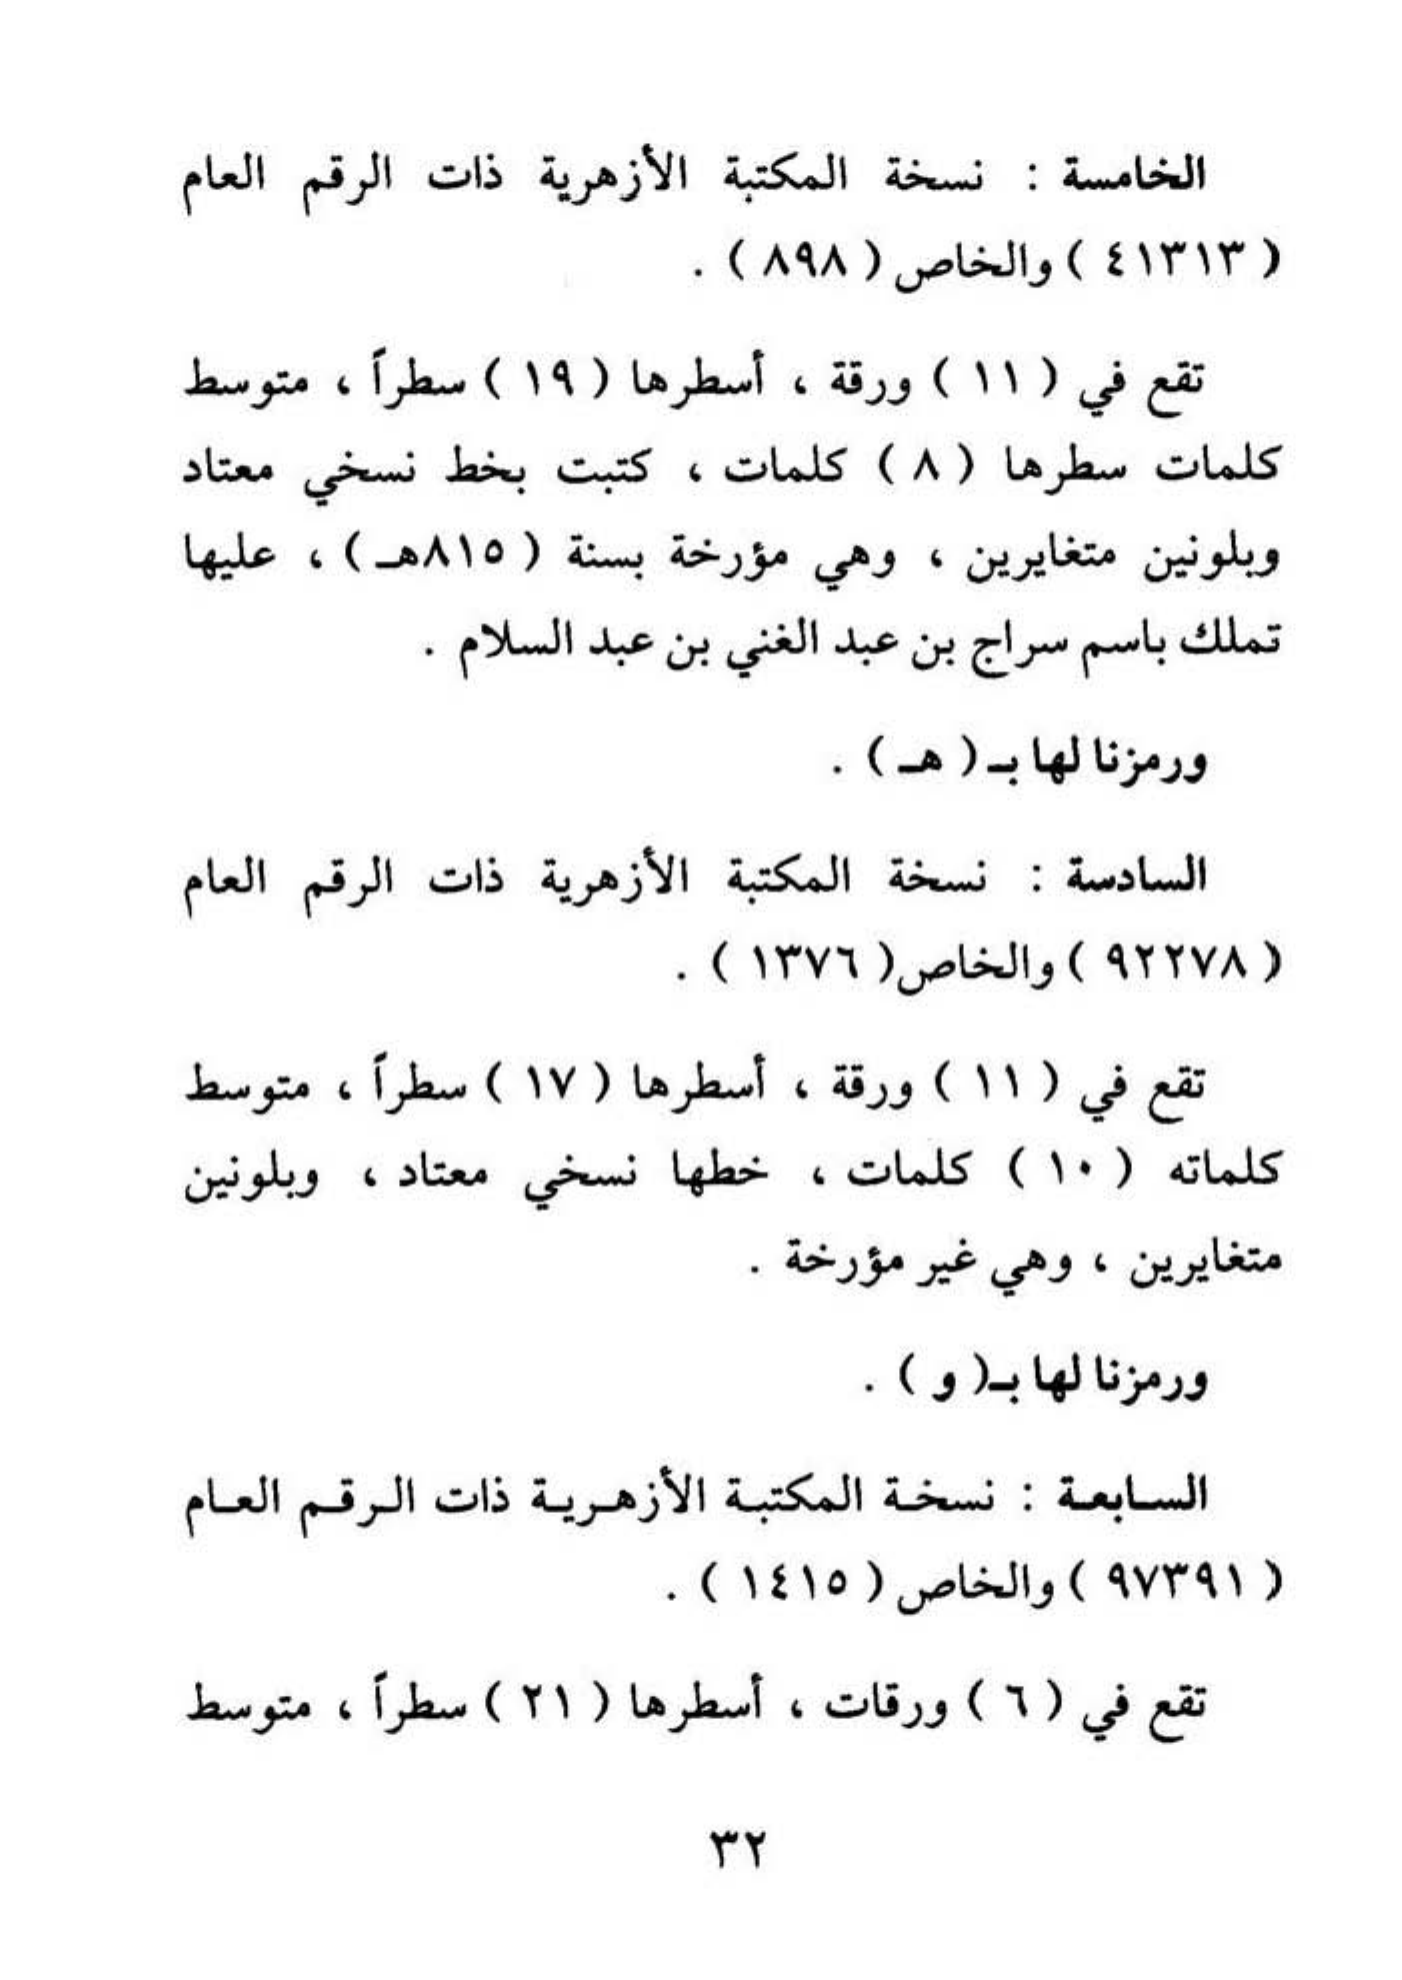 الخامسة : نسخة المكتبة الأزهرية ذات الرقم العام
( ٤١٣١٣ ) والخاص ( ٨٩٨ ) .
تقع في ( ١١ ) ورقة ، أسطرها ( ١٩ ) سطراً ، متوسط
كلمات سطرها ( ٨ ) كلمات ، كتبت بخط نسخي معتاد
وبلونين متغايرين ، وهي مؤرخة بسنة ( ٨١٥هـ ) ، عليها
تملك باسم سراج بن عبد الغني بن عبد السلام .
ورمزنا لها بـ ( هـ ) .
السادسة : نسخة المكتبة الأزهرية ذات الرقم العام
( ٩٢٢٧٨ ) والخاص ( ١٣٧٦ ) .
تقع في ( ١١ ) ورقة ، أسطرها ( ١٧ ) سطراً ، متوسط
كلماته ( ١٠ ) كلمات ، خطها نسخي معتاد ، وبلونين
متغايرين ، وهي غير مؤرخة .
ورمزنا لها بـ( و ) .
السابعة : نسخة المكتبة الأزهرية ذات الرقم العام
( ٩٧٣٩١ ) والخاص ( ١٤١٥ ) .
تقع في ( ٦ ) ورقات ، أسطرها ( ٢١ ) سطراً ، متوسط
٣٢